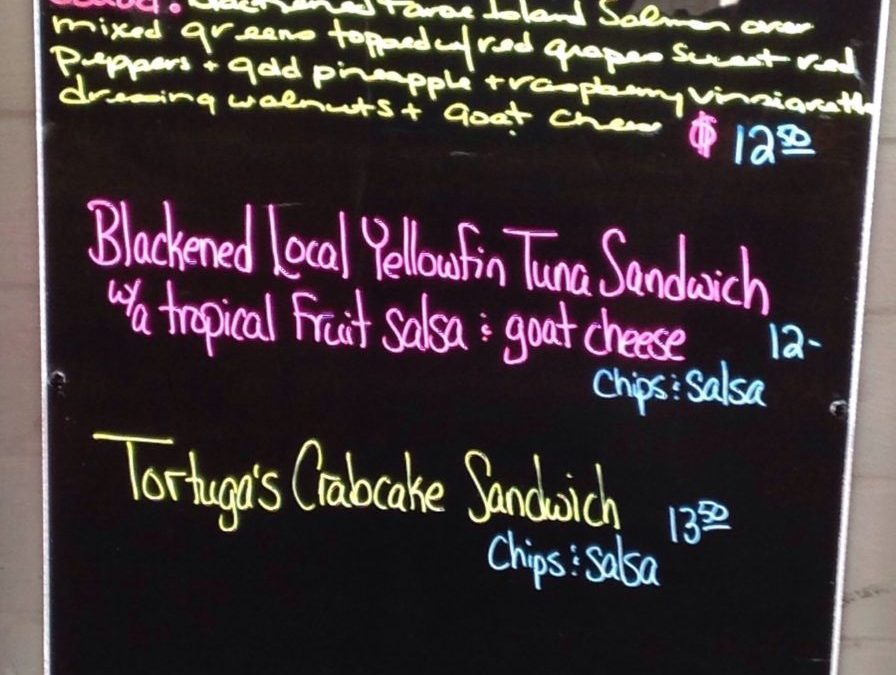 Salad: Blackened Faroe Island Salmon over
mixed greens topped w/ red grapes sweet red
Peppers + gold pineapple + raspberry vinaigrette
dressing walnuts + goat cheese $ 12 50
Blackened Local Yellowfin Tuna Sandwich
w/ a tropical Fruit salsa & goat cheese 12-
Chips & Salsa
Tortuga's Crabcake Sandwich 13 50
Chips & Salsa